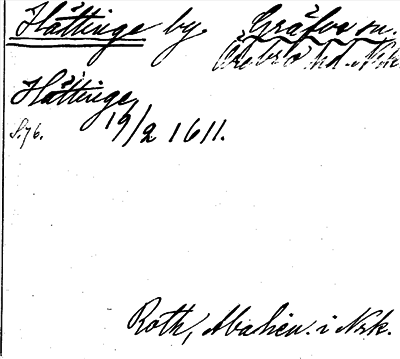 Hättinge by. Gräfve sn.
Örebro hd. Nrk.
Hättinge
S. 76. 19/2 1611.
Roth, i Nrk.